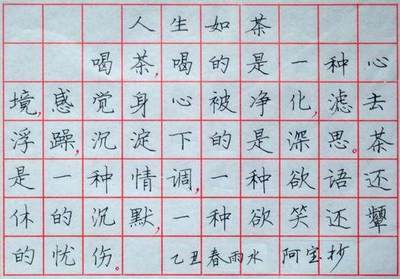 人生如茶
喝茶,喝的是一种心
境,感觉身心被净化,滤去
浮躁,沉淀下的是深思。茶
是一种情调,一种欲语还
休的沉默,一种欲笑还颦
的忧伤。 乙丑春雨水 阿宝抄